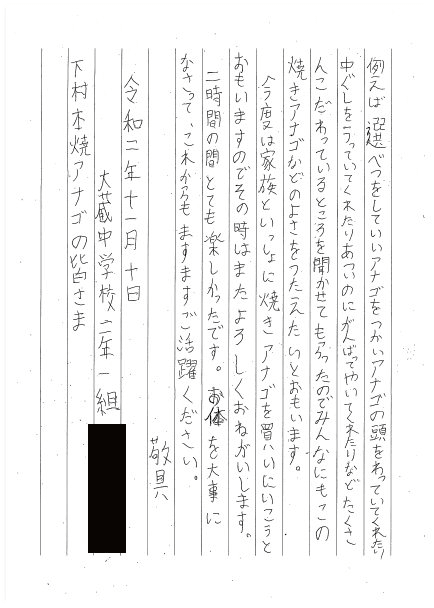 例えば選べつをしていいアナゴをつかいアナゴの頭をわっていてくれたり
中ぐしをうっていてくれたりあついのにがんばってやいてくれたりなどたくさ
んこだわっているところを聞かせてもらったのでみんなにもこの
焼きアナゴなどのよさをつたえたいとおもいます。
今度は家族といっしょに焼きアナゴを買いにいこうと
おもいますのでその時はまたよろしくおねがいします。
二時間の間とても楽しかったです。お体を大事に
なさって、これからもますますご活躍ください。
敬具
令和二年十一月十日
大蔵中学校二年一組
下村本焼アナゴの皆さま